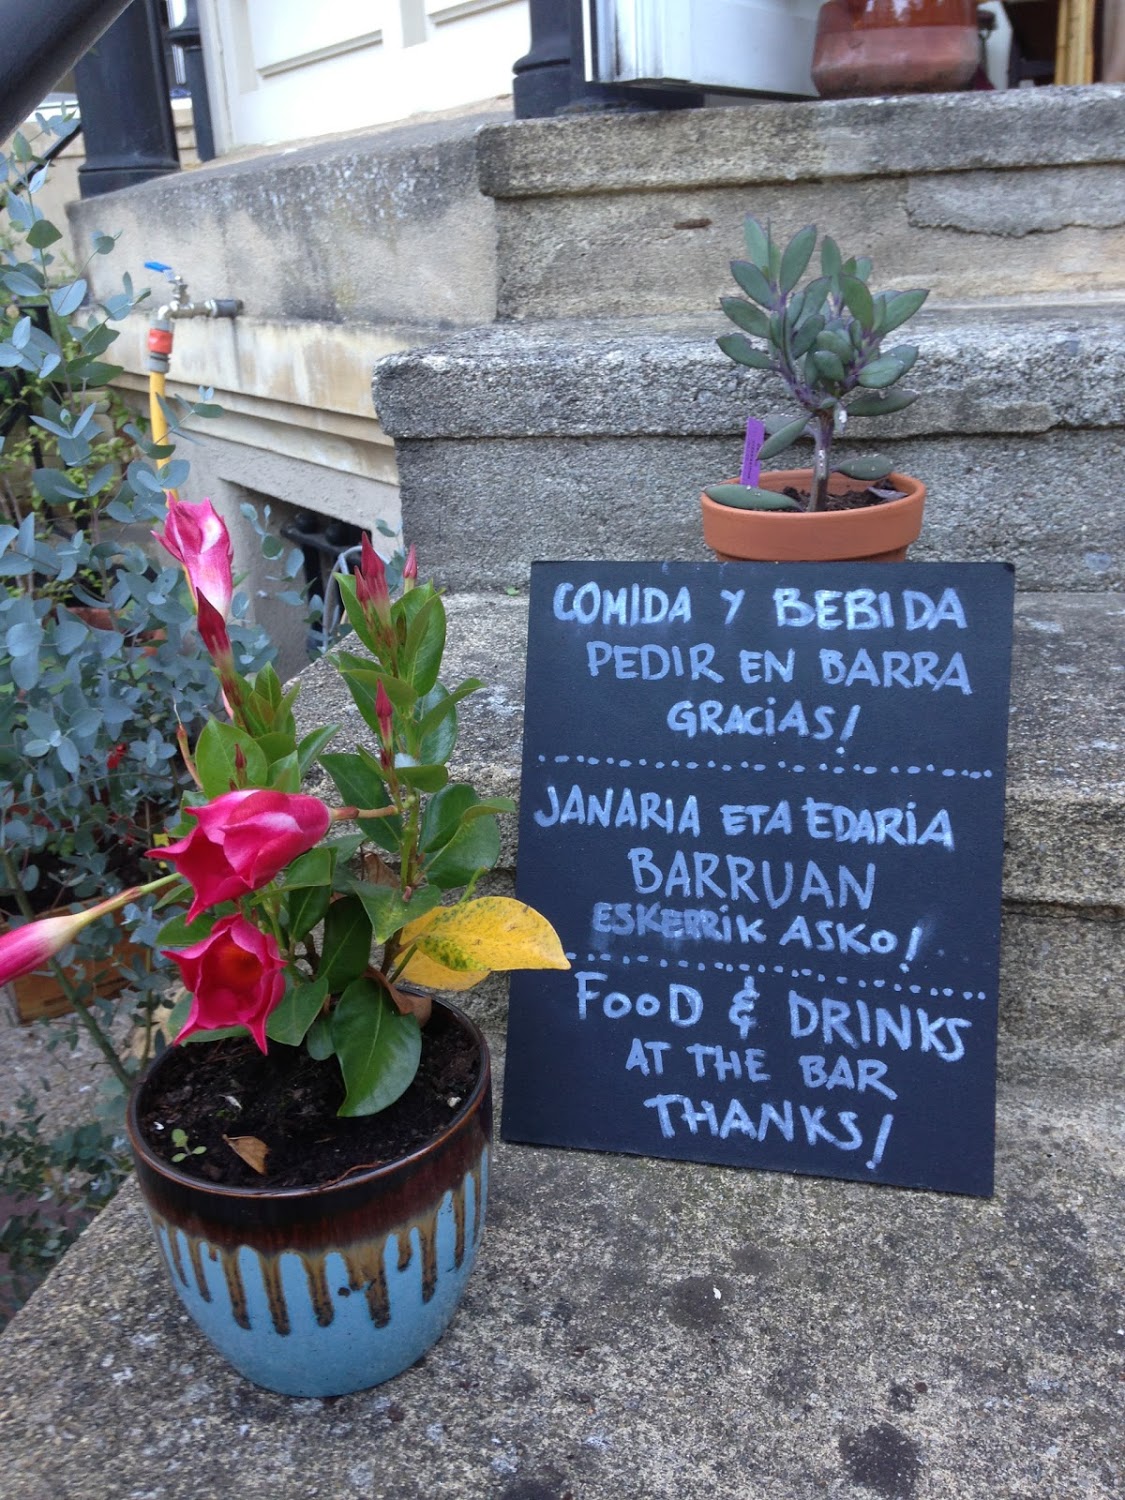 COMIDA Y BEBIDA
PEDIR EN BARRA
GRACiAS!
JANARIA ETA EDARiA
BARRUAN
ESKERRiK ASKO!
FooD & DRINKS
AT THE BAR
THANKS!